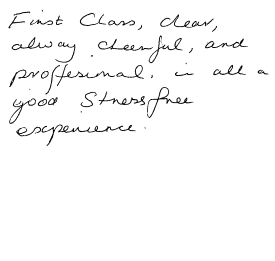 First Class, clear,
alway cheerful, and
proffesional. in all a
good Stressfree
experience.